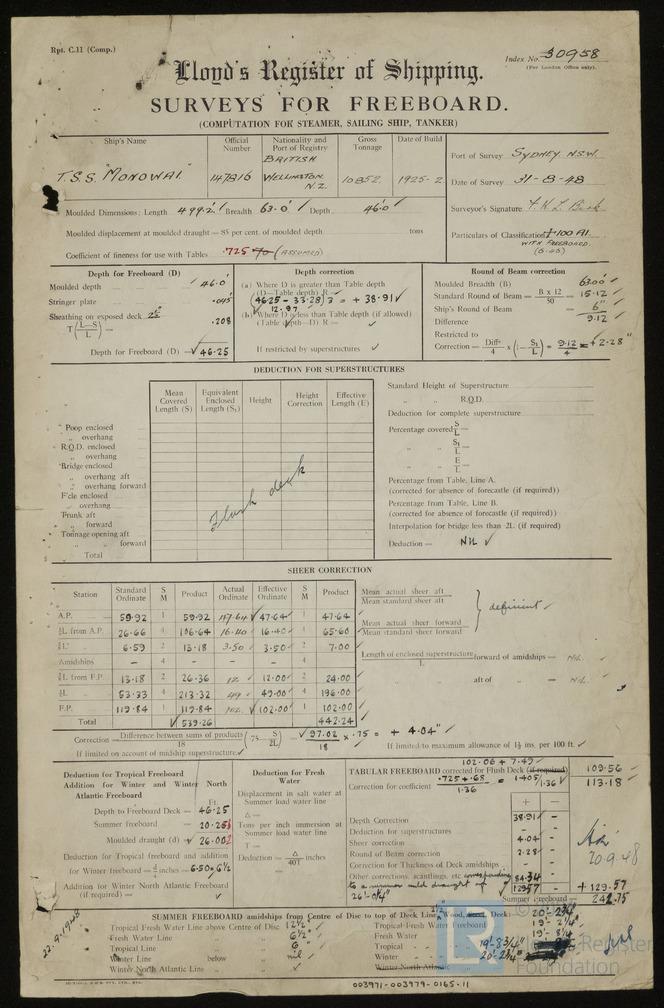 Rpt. C.11 (Comp.)
Index No. 30958
(For London Office only).
Lloyd's Register of Shipping.
SURVEYS FOR FREEBOARD.
(COMPUTATION FOR STEAMER, SAILING SHIP, TANKER)
Ship's Name
Official Number
Nationality and Port of Registry
Gross Tonnage
Date of Build
T.S.S. "MONOWAI"
147816
BRITISH WELLINGTON N.Z.
10852
1925-2
Port of Survey SYDNEY N.S.W.
Date of Survey 31-8-48
Surveyor's Signature
Particulars of Classification +100 A1. WITH FREEBOARD
Moulded Dimensions: Length 499.2' Breadth 63.0' Depth 46.0'
Moulded displacement at moulded draught = 85 per cent. of moulded depth tons
Coefficient of fineness for use with Tables .725 (ASSUMED)
Depth for Freeboard (D)
Moulded depth 46.0'
Stringer plate .045
Sheathing on exposed deck 2½
T(L—S/L) = .208
Depth for Freeboard (D) = 46.25
Depth correction
(a) Where D is greater than Table depth
(D—Table depth) R =
(46.25 - 33.28) 3 = + 38.91
12.97
(b) Where D is less than Table depth (if allowed)
(Table depth—D) R =
If restricted by superstructures
Round of Beam correction
Moulded Breadth (B) 63.00
Standard Round of Beam = B x 12 / 50 = 15.12
Ship's Round of Beam = 6"
Difference 9.12
Restricted to
Correction = Diff/4 x (1 - S₁/L) = 9.12/4 = +2.28"
DEDUCTION FOR SUPERSTRUCTURES
Mean Covered Length (S)
Equivalent Enclosed Length (S₁)
Height
Height Correction
Effective Length (E)
Poop enclosed
„ overhang
R.Q.D. enclosed
„ overhang
Bridge enclosed
„ overhang aft
„ overhang forward
F'cle enclosed
„ overhang
Trunk aft
„ forward
Tonnage opening aft
„ „ forward
Total
Flush deck
Standard Height of Superstructure
„ „ R.Q.D.
Deduction for complete superstructure
Percentage covered S/L =
„ „ S₁/L =
„ „ E/L =
Percentage from Table, Line A.
(corrected for absence of forecastle (if required))
Percentage from Table, Line B.
(corrected for absence of forecastle (if required))
Interpolation for bridge less than ·2L (if required)
Deduction = NIL
SHEER CORRECTION
Station Standard Ordinate S M Product Actual Ordinate Effective Ordinate S M Product
A.P. 59.92 1 59.92 47.64 47.64 1 47.64
⅙L from A.P. 26.66 4 106.64 16.40 16.40 4 65.60
⅓L „ 6.59 2 13.18 3.50 3.50 2 7.00
Amidships - 4 - - - 4 -
⅓L from F.P. 13.18 2 26.36 12 12.00 2 24.00
⅙L „ 53.33 4 213.32 49 49.00 4 196.00
F.P. 119.84 1 119.84 102 102.00 1 102.00
Total 539.26 442.24
Mean actual sheer aft
Mean standard sheer aft
Mean actual sheer forward
Mean standard sheer forward
deficient
Length of enclosed superstructure / L forward of amidships = NIL
„ aft of „ = NIL
Correction = Difference between sums of products / 18 (·75 - S/2L) = 97.02 / 18 x .75 = + 4.04"
If limited on account of midship superstructure.
If limited to maximum allowance of 1½ ins. per 100 ft.
Deduction for Tropical Freeboard
Addition for Winter and Winter North Atlantic Freeboard
Ft.
Depth to Freeboard Deck = 46.25
Summer freeboard = 20.25
Moulded draught (d) = 26.00
Deduction for Tropical freeboard and addition
for Winter freeboard = d/4 inches = 6.50 = 6½
Addition for Winter North Atlantic Freeboard
(if required) =
Deduction for Fresh Water
Displacement in salt water at Summer load water line
Δ =
Tons per inch immersion at Summer load water line
T =
Deduction = Δ/40T inches
TABULAR FREEBOARD corrected for Flush Deck (if required)
102.06 + 7.49
109.56
Correction for coefficient .725 + .68 / 1.36 = 1.405 / 1.36
113.18
+ -
Depth Correction 38.91 -
Deduction for superstructures - -
Sheer correction 4.04 -
Round of Beam correction 2.28 -
Correction for Thickness of Deck amidships - -
Other corrections, scantlings, etc corresponding to a summer mld draught of 26'-0¼" 84.34
129.57 -
+ 129.57
Summer Freeboard = 242.75
20.9.48
22.9.1948
SUMMER FREEBOARD amidships from Centre of Disc to top of Deck Line, Wood, Deck: 20'-2¾"
Tropical Fresh Water Line above Centre of Disc 12½
Fresh Water Line „ 6½"
Tropical Line „ 6
Winter Line below nil
Winter North Atlantic Line „
Tropical Fresh Water Freeboard 19'-2¼"
Fresh Water „ 19'-8¼"
Tropical „ 19'-8¾"
Winter „ 20'-2¾"
Winter North Atlantic „
Lloyd's Register Foundation
003971-003979-0165-11